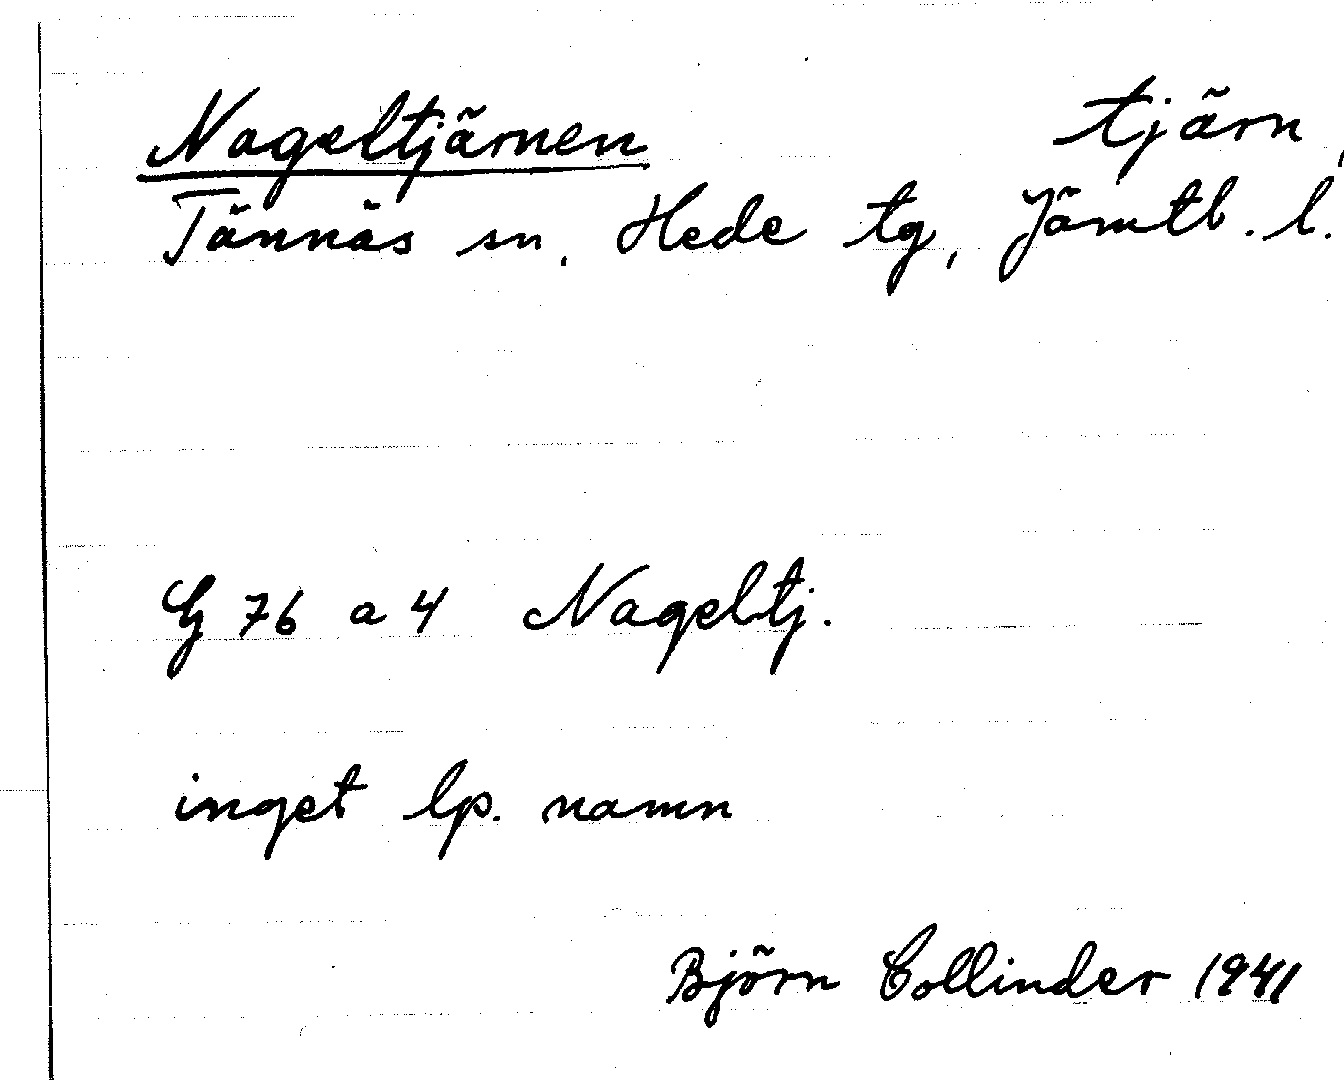 Nageltjärnen tjärn,
Tännäs sn. Hede tg, Jämtl. l.
G 76 a 4 Nageltj.
inget lp. namn
Björn Collinder 1941